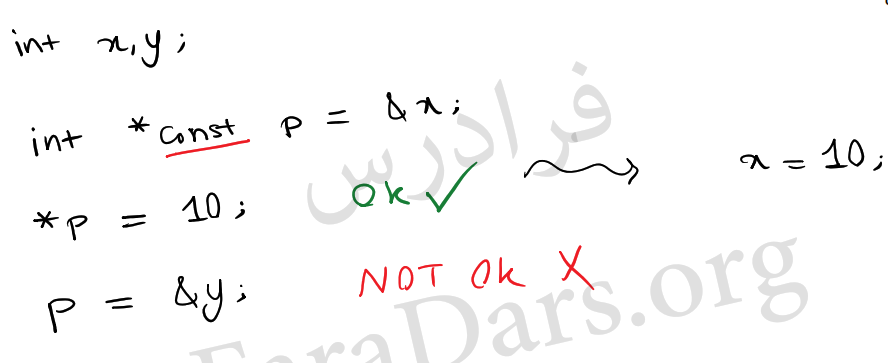 int x,y;
int *const p = &x;
*p = 10; OK ✓ x = 10;
p = &y; NOT Ok X
فرادرس
FaraDars.org